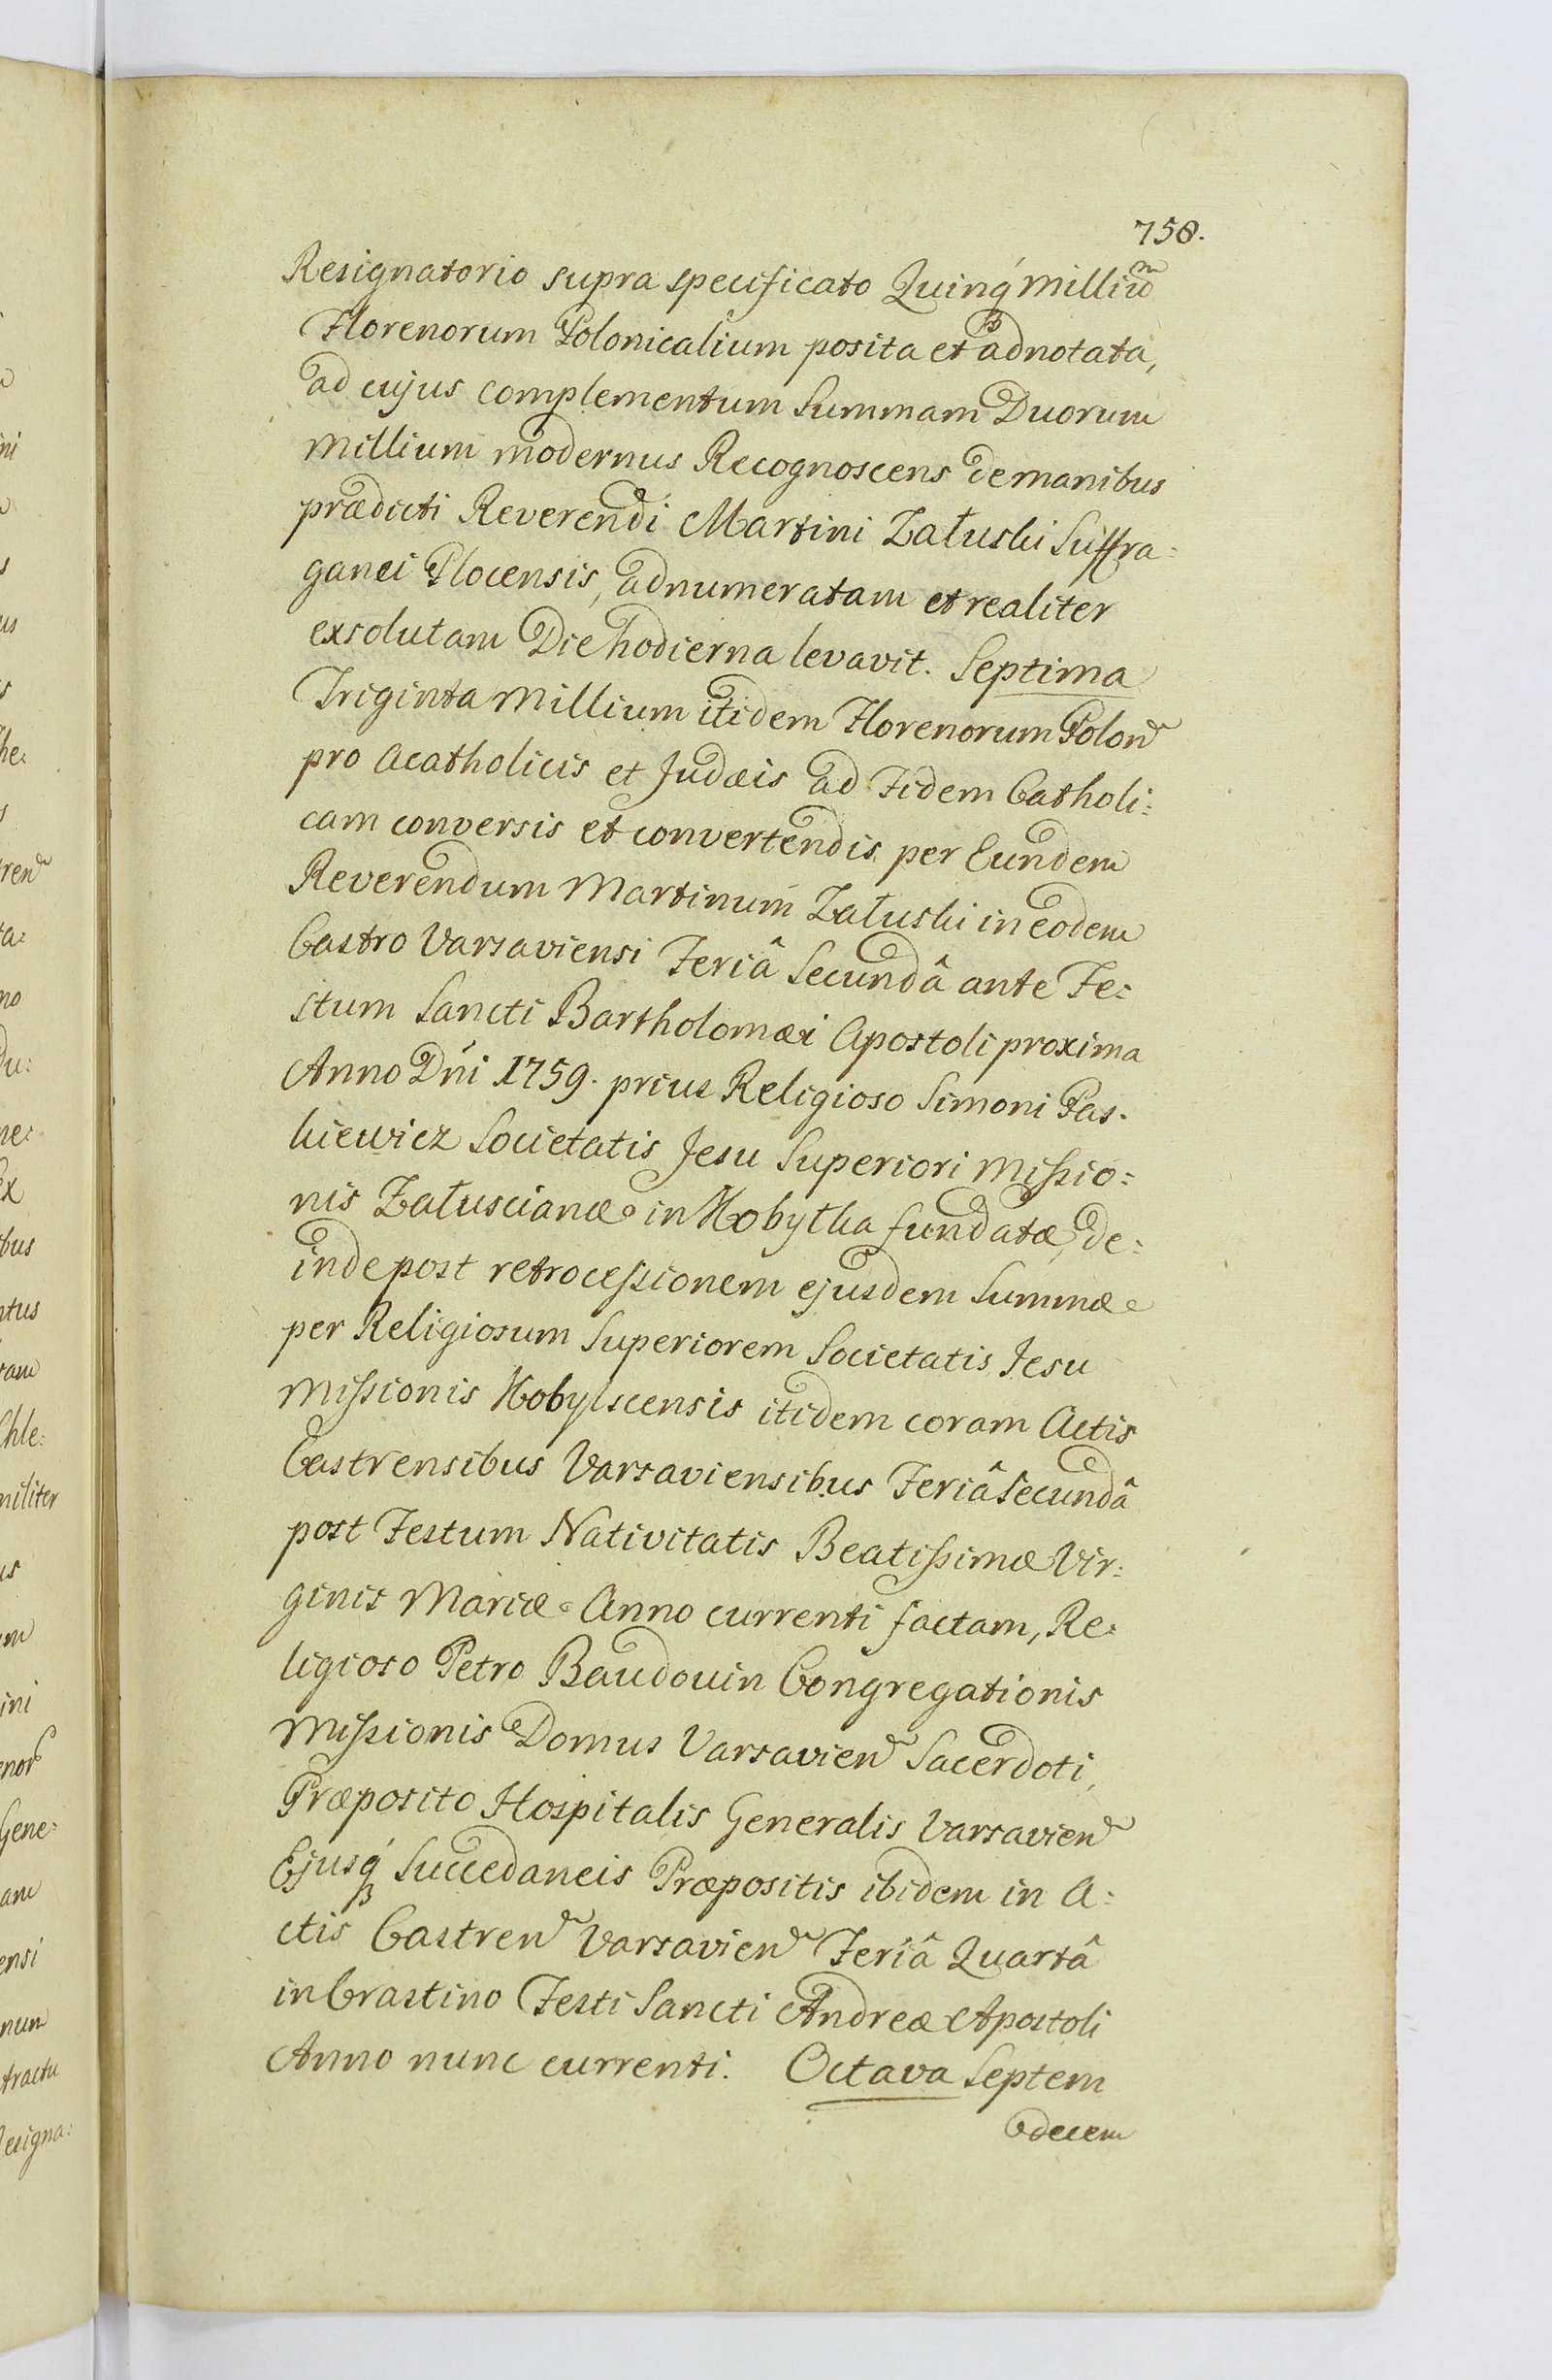 758.
Resignatorio supra specificato Quinq́ Milliũ
Florenorum Polonicalium posita et adnotata,
ad cujus complementum Summam Duorum
Millium modernus Recognoscens de manibus
prædicti Reverendi Martini Załuski Suffra=
ganei Plocensis, adnumeratam et realiter
exsolutam Die hodierna levavit. Septima
Triginta Millium itidem Florenorum Polon
pro Acatholicis et Judæis ad Fidem Catholi:
cam conversis et convertendis per Eundem
Reverendum Martinum Załuski in eodem
Castro Varsaviensi Feriâ Secundâ ante Fe:
stum Sancti Bartholomæi Apostoli proxima
Anno Dńi 1759. prius Religioso Simoni Pas.
kiewicz Societatis Jesu Superiori Missio:
nis Załuscianæ in Kobyłka fundatæ, de:
inde post retrocessionem ejusdem Summæ
per Religiosum Superiorem Societatis Jesu
Missionis Kobylscensis itidem coram Actis
Castrensibus Varsaviensibus Feriâ Secundâ
post Festum Nativitatis Beatissimæ Vir:
ginis Mariæ Anno currenti factam, Re:
ligioso Petro Baudouin Congregationis
Missionis Domus Varsavien Sacerdoti,
Præposito Hospitalis Generalis Varsavien
Ejusq́ Succedaneis Præpositis ibidem in A:
ctis Castren Varsavien Feriâ Quartâ
in Crastino Festi Sancti Andreæ Apostoli
Anno nunc currenti. Octava Septem
decem
ini
he:
ren
ta:
no
Du:
ne:
Ex
bus
ntus
ram
Chle:
militer
us
em
ini
enor
Gene:
am
ensi
num
tractu
Resigna: